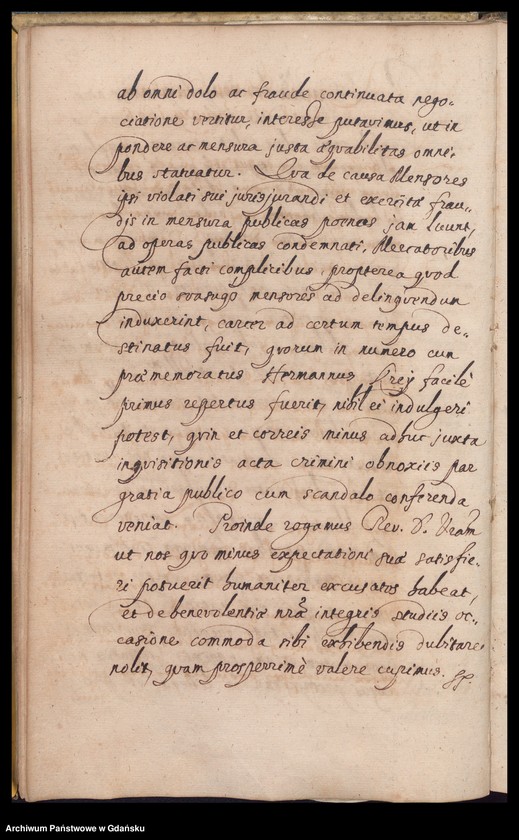 ab omni dolo ac fraude continuata nego-
ciatione vertitur, interesse putavimus, ut in
pondere ac mensura justa æquabilitas omni-
bus statuatur. Qva de causa Mensores
ipsi violati sui jurisjurandi et exercitæ frau-
dis in mensura publicas poenas jam luunt,
ad operas publicas condemnati, Mercatoribus
autem facti complicibus, propterea qvod
precio mensores ad delinqvendum
induxerint, carcer ad certum tempus de-
stinatus fuit, qvorum in numero cum
præmemoratus Hermannus Frey facilè
primus repertus fuerit, nihil ei indulgeri
potest, qvin et correis minus adhuc juxta
inqvisitionis acta crimini obnoxiis par
gratia publico cum scandalo conferenda
veniat. Proinde rogamus Rev. D. Vram
ut nos qvo minus expectationi suæ satisfie-
ri potuerit humaniter excusatos habeat,
et de benevolentiæ nræ integris studiis oc-
casione commoda sibi exhibendis dubitare
nolit, qvam prosperrimè valere cupimus.
Archiwum Państwowe w Gdańsku